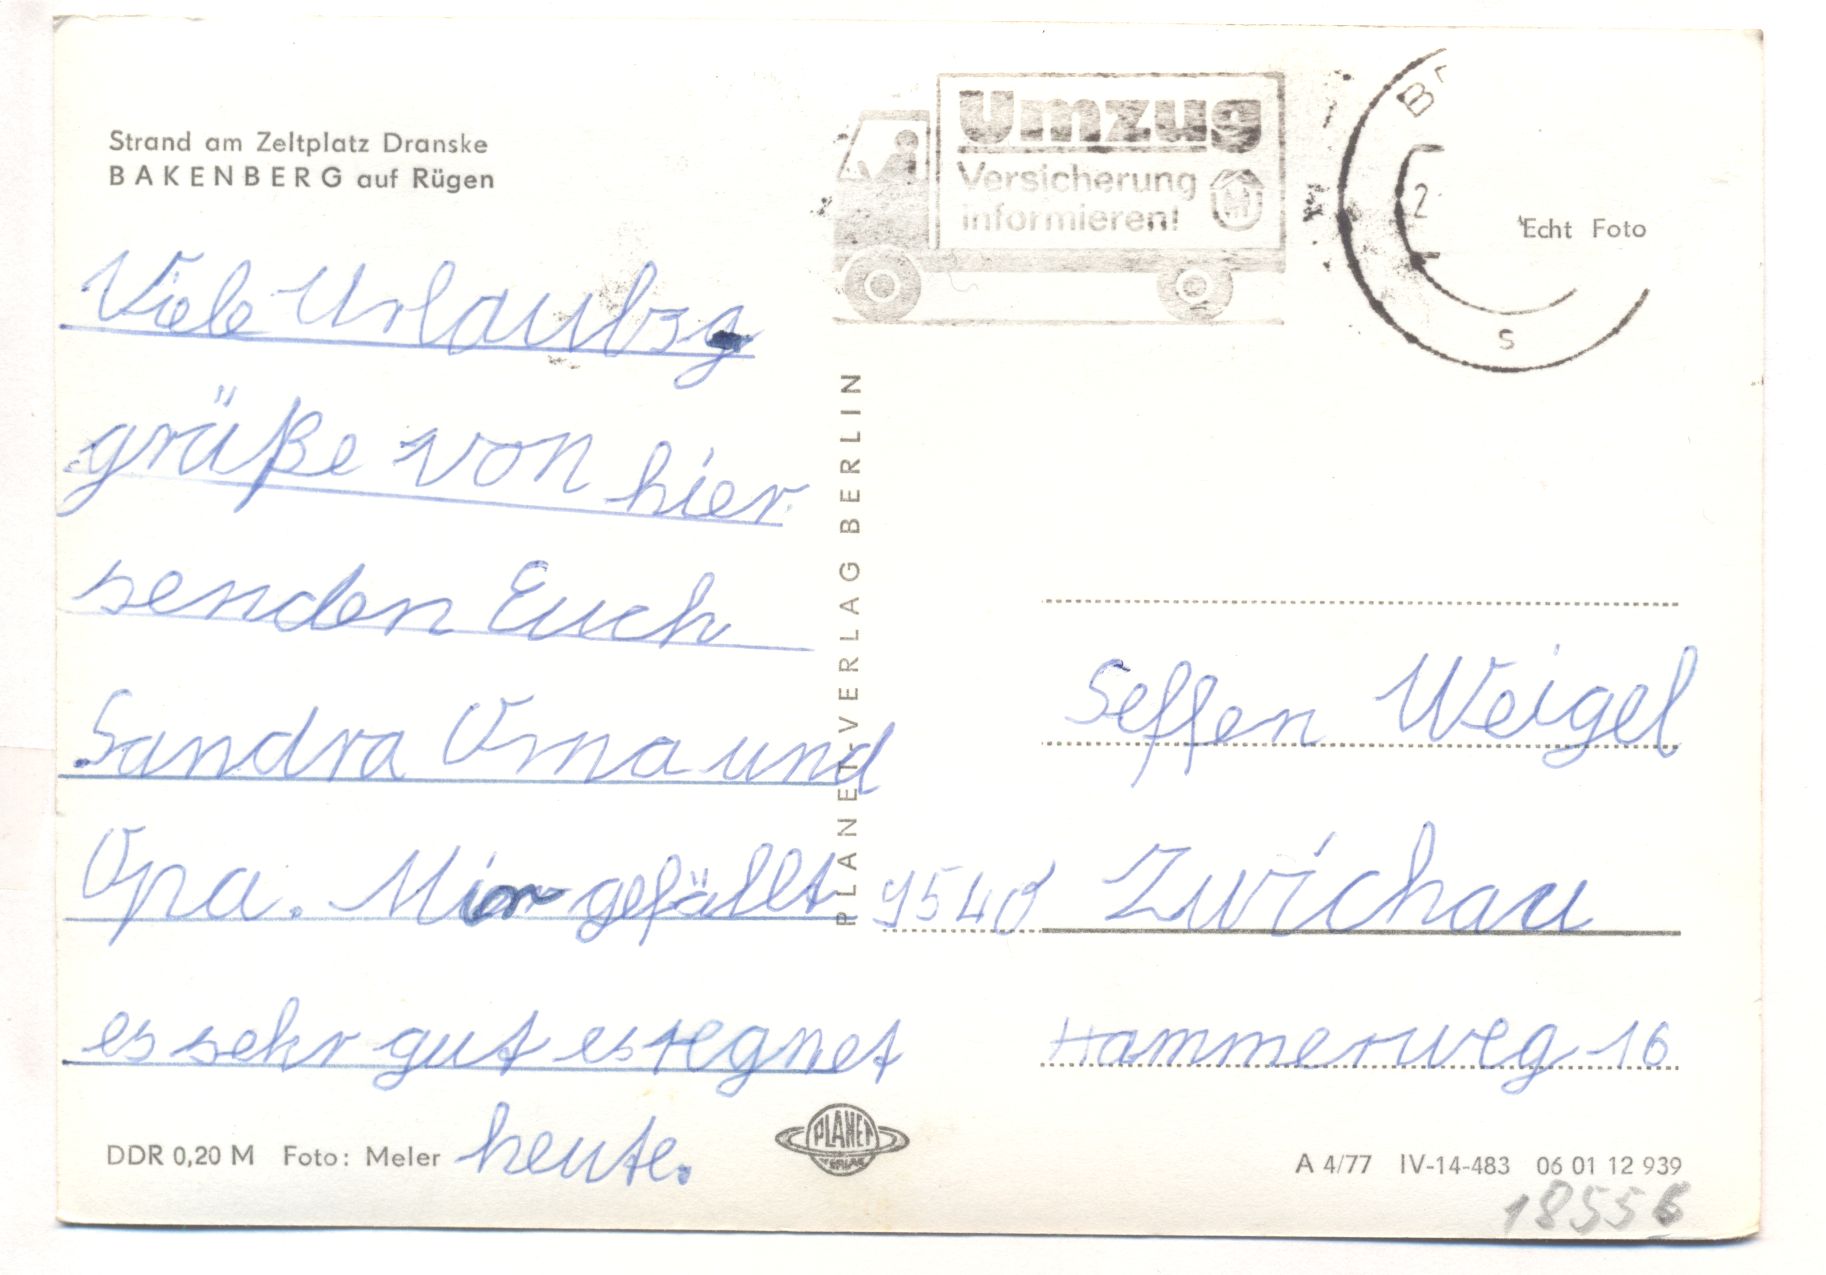 Strand am Zeltplatz Dranske
BAKENBERG auf Rügen
Umzug
Versicherung
informieren!
B
2
s
Echt Foto
Viele Urlaubsg
grüße von hier
senden Euch
Sandra Oma und
Opa. Mir gefällt
es sehr gut es regnet
heute.
PLANET-VERLAG BERLIN
Seffen Weigel
9540 Zwichau
Hammerweg 16
DDR 0,20 M Foto: Meler
PLANET
VERLAG
A 4/77 IV-14-483 06 01 12 939
18556